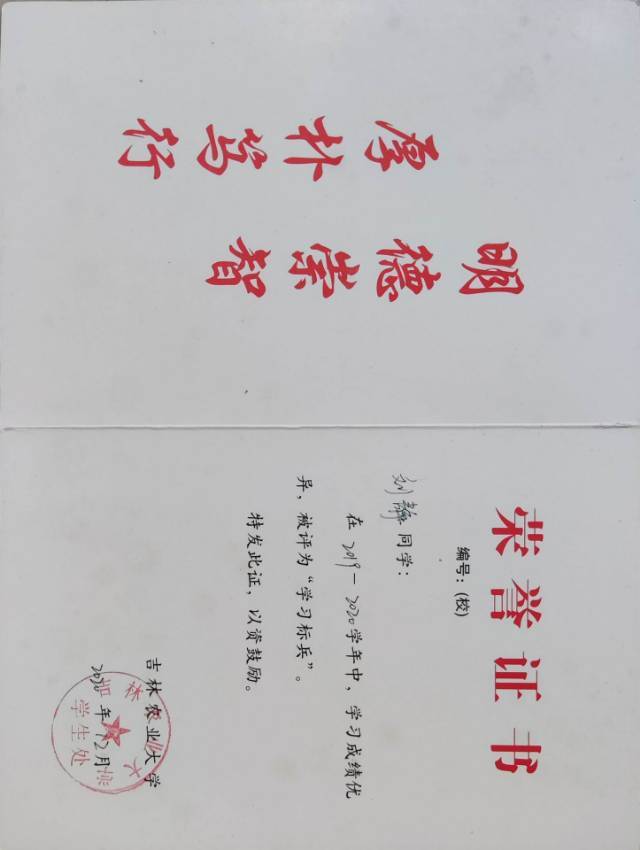 明德崇智
厚朴笃行
荣誉证书
编号：(校)
刘静同学：
在2019－2020学年中，学习成绩优
异，被评为“学习标兵”。
特发此证，以资鼓励。
吉林农业大学
2020年12月
学生处